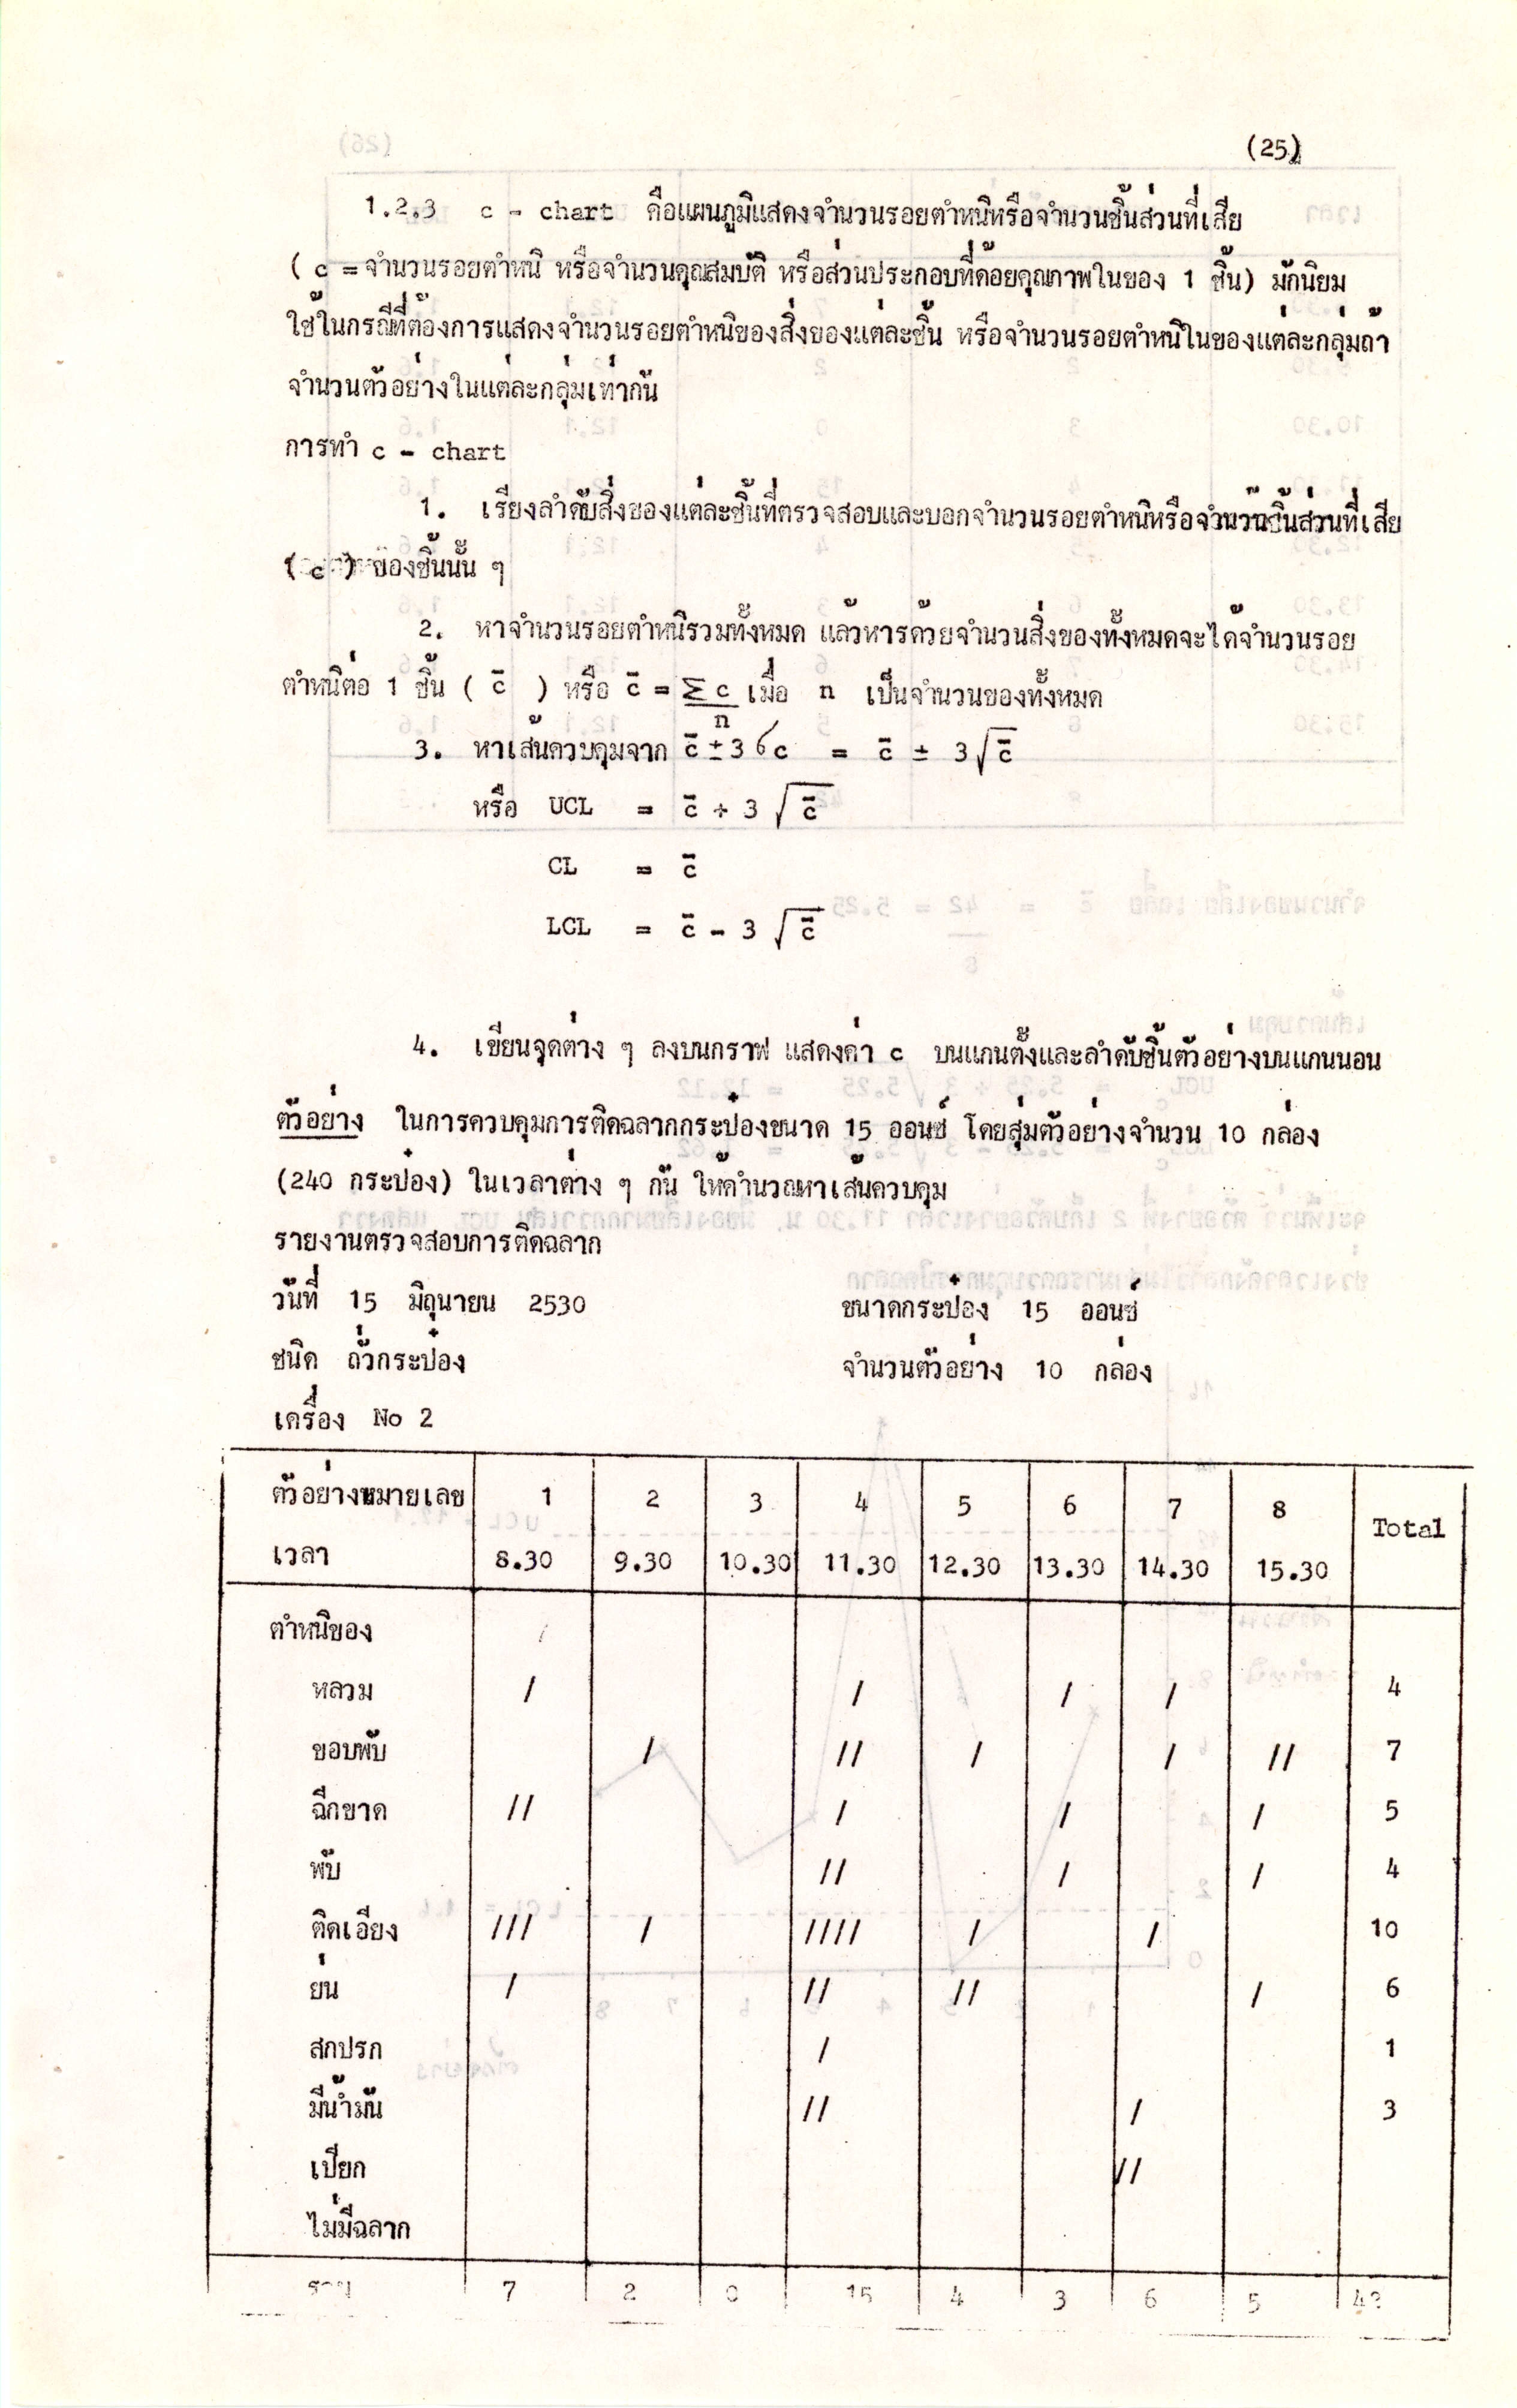 (25)
1.2.3 c - chart คือแผนภูมิแสดงจำนวนรอยตำหนิหรือจำนวนชิ้นส่วนที่เสีย
( c = จำนวนรอยตำหนิ หรือจำนวนคุณสมบัติ หรือส่วนประกอบที่ด้อยคุณภาพในของ 1 ชิ้น) มักนิยม
ใช้ในกรณีที่ต้องการแสดงจำนวนรอยตำหนิของสิ่งของแต่ละชิ้น หรือจำนวนรอยตำหนิในของแต่ละกลุ่มถ้า
จำนวนตัวอย่างในแต่ละกลุ่มเท่ากัน
การทำ c - chart
1. เรียงลำดับสิ่งของแต่ละชิ้นที่ตรวจสอบและบอกจำนวนรอยตำหนิหรือจำนวนชิ้นส่วนที่เสีย
( c ) ของชิ้นนั้น ๆ
2. หาจำนวนรอยตำหนิรวมทั้งหมด แล้วหารด้วยจำนวนสิ่งของทั้งหมดจะได้จำนวนรอย
ตำหนิต่อ 1 ชิ้น ( c̄ ) หรือ c̄ = Σc/n เมื่อ n เป็นจำนวนของทั้งหมด
3. หาเส้นควบคุมจาก c̄ ± 3 σc = c̄ ± 3 √c̄
หรือ UCL = c̄ + 3 √c̄
CL = c̄
LCL = c̄ - 3 √c̄
4. เขียนจุดต่าง ๆ ลงบนกราฟ แสดงค่า c บนแกนตั้งและลำดับชิ้นตัวอย่างบนแกนนอน
ตัวอย่าง ในการควบคุมการติดฉลากกระป๋องขนาด 15 ออนซ์ โดยสุ่มตัวอย่างจำนวน 10 กล่อง
(240 กระป๋อง) ในเวลาต่าง ๆ กัน ให้คำนวณหาเส้นควบคุม
รายงานตรวจสอบการติดฉลาก
วันที่ 15 มิถุนายน 2530 ขนาดกระป๋อง 15 ออนซ์
ชนิด ถั่วกระป๋อง จำนวนตัวอย่าง 10 กล่อง
เครื่อง No 2
ตัวอย่างหมายเลข 1 2 3 4 5 6 7 8 Total
เวลา 8.30 9.30 10.30 11.30 12.30 13.30 14.30 15.30
ตำหนิของ
หลวม / / / / 4
ขอบพับ / // / / // 7
ฉีกขาด // / / / 5
พับ // / / 4
ติดเอียง /// / //// / / 10
ย่น / // // / 6
สกปรก / 1
มีน้ำมัน // / 3
เปียก //
ไม่มีฉลาก
รวม 7 2 0 15 4 3 6 5